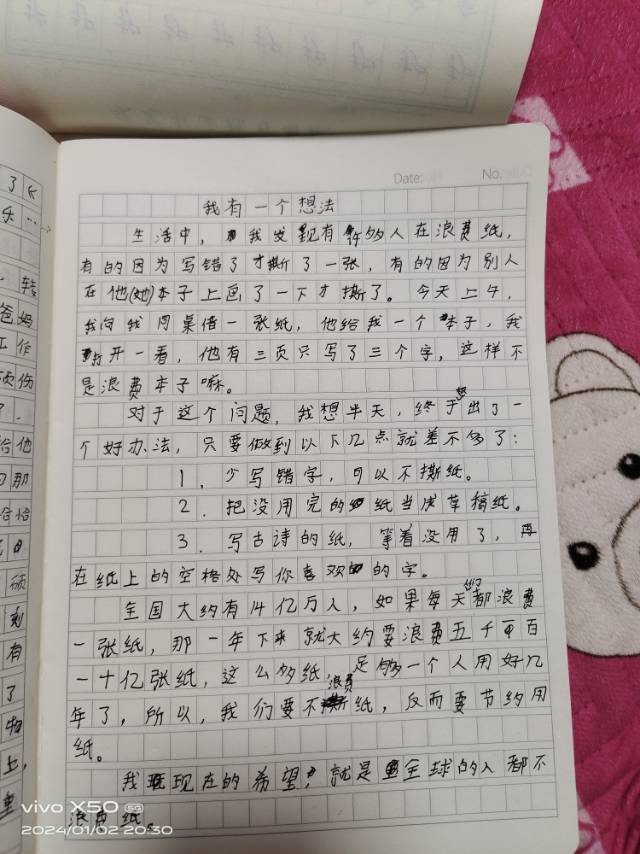 Date:
No.
我有一个想法
生活中，我发现有许多人在浪费纸，
有的因为写错了才撕了一张，有的因为别人
在他(她)本子上画了一下才撕了。今天上午，
我向我同桌借一张纸，他给我一个本子，我
打开一看，他有三页只写了三个字，这样不
是浪费本子嘛。
对于这个问题，我想半天，终于想出了一
个好办法，只要做到以下几点就差不多了：
1．少写错字，可以不撕纸。
2．把没用完的纸当成草稿纸。
3．写古诗的纸，等着没用了，再
在纸上的空格处写你喜欢的的字。
全国大约有14亿万人，如果每天都浪费
一张纸，那一年下来就大约要浪费五千百
一十亿张纸，这么多纸，足够一个人用好几
年了，所以，我们要不浪费纸，反而要节约用
纸。
我现在的希望，就是全球的人都不
浪费纸。
了
乐…
转
爸妈
工作
烦伤
了．
给他
那
恰恰
颁
刻
有
了
物
上，
重
vivo X50 5G
2024/01/02 20:30